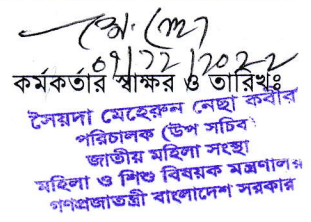 ০৭/১২/২০২২
কর্মকর্তার স্বাক্ষর ও তারিখঃ
সৈয়দা মেহেরুন নেছা কবীর
পরিচালক (উপ সচিব)
জাতীয় মহিলা সংস্থা
মহিলা ও শিশু বিষয়ক মন্ত্রণালয়
গণপ্রজাতন্ত্রী বাংলাদেশ সরকার